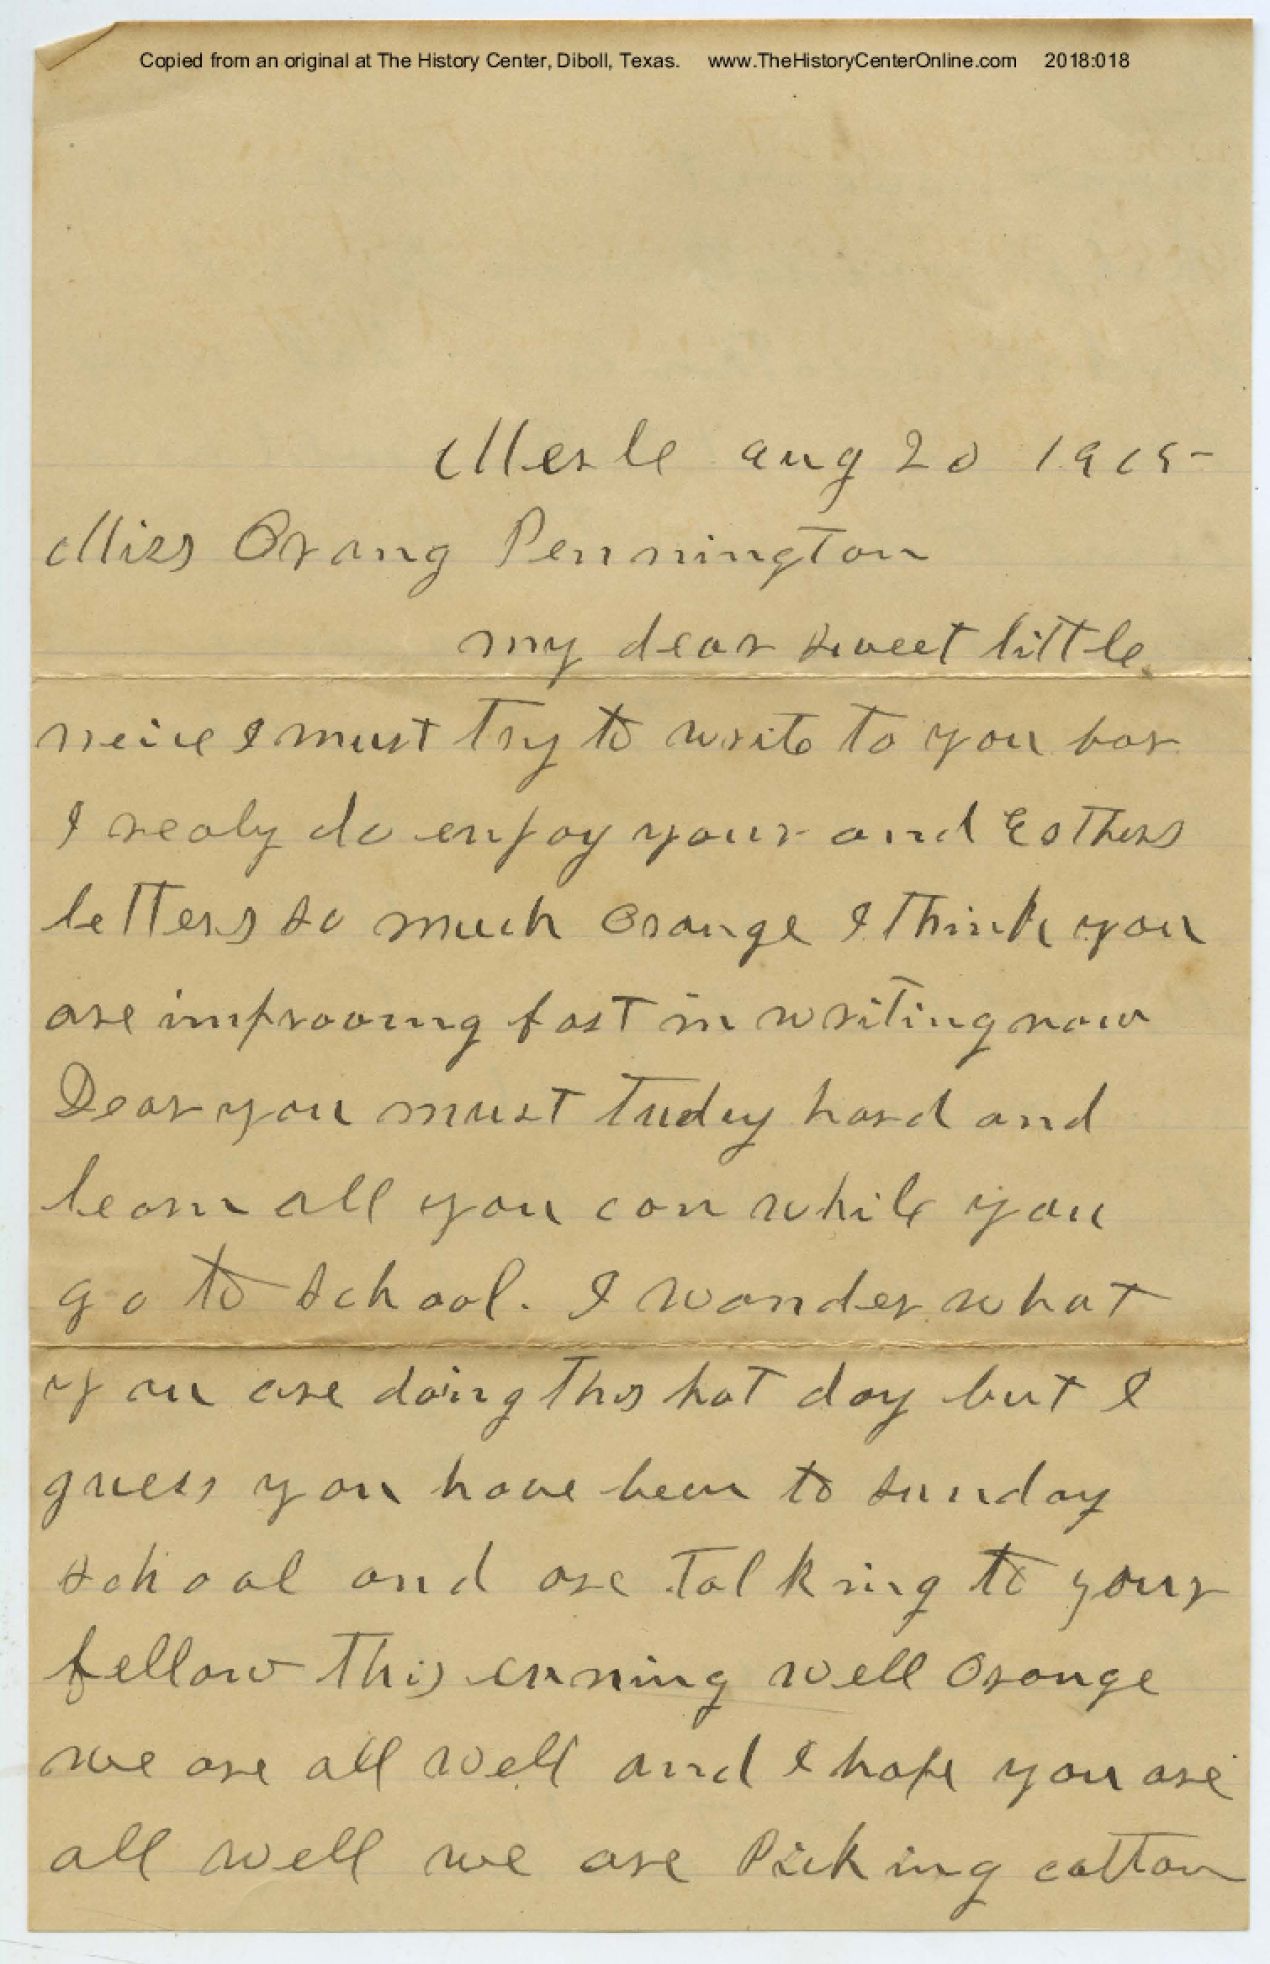 Copied from an original at The History Center, Diboll, Texas. www.TheHistoryCenterOnline.com 2018:018
Merle aug 20 1905
Miss Orang Pennington
my dear sweet little
neice I must try to write to you for
I realy do enjoy your and Esthers
letters so much Orange I think you
are improoving fast in writing now
Dear you must tudey hard and
learn all you can while you
go to school. I wonder what
you are doing this hot day but I
guess you have been to sunday
school and are talking to your
fellow this evning well Orange
we are all well and I hope you are
all well we are Picking cotton